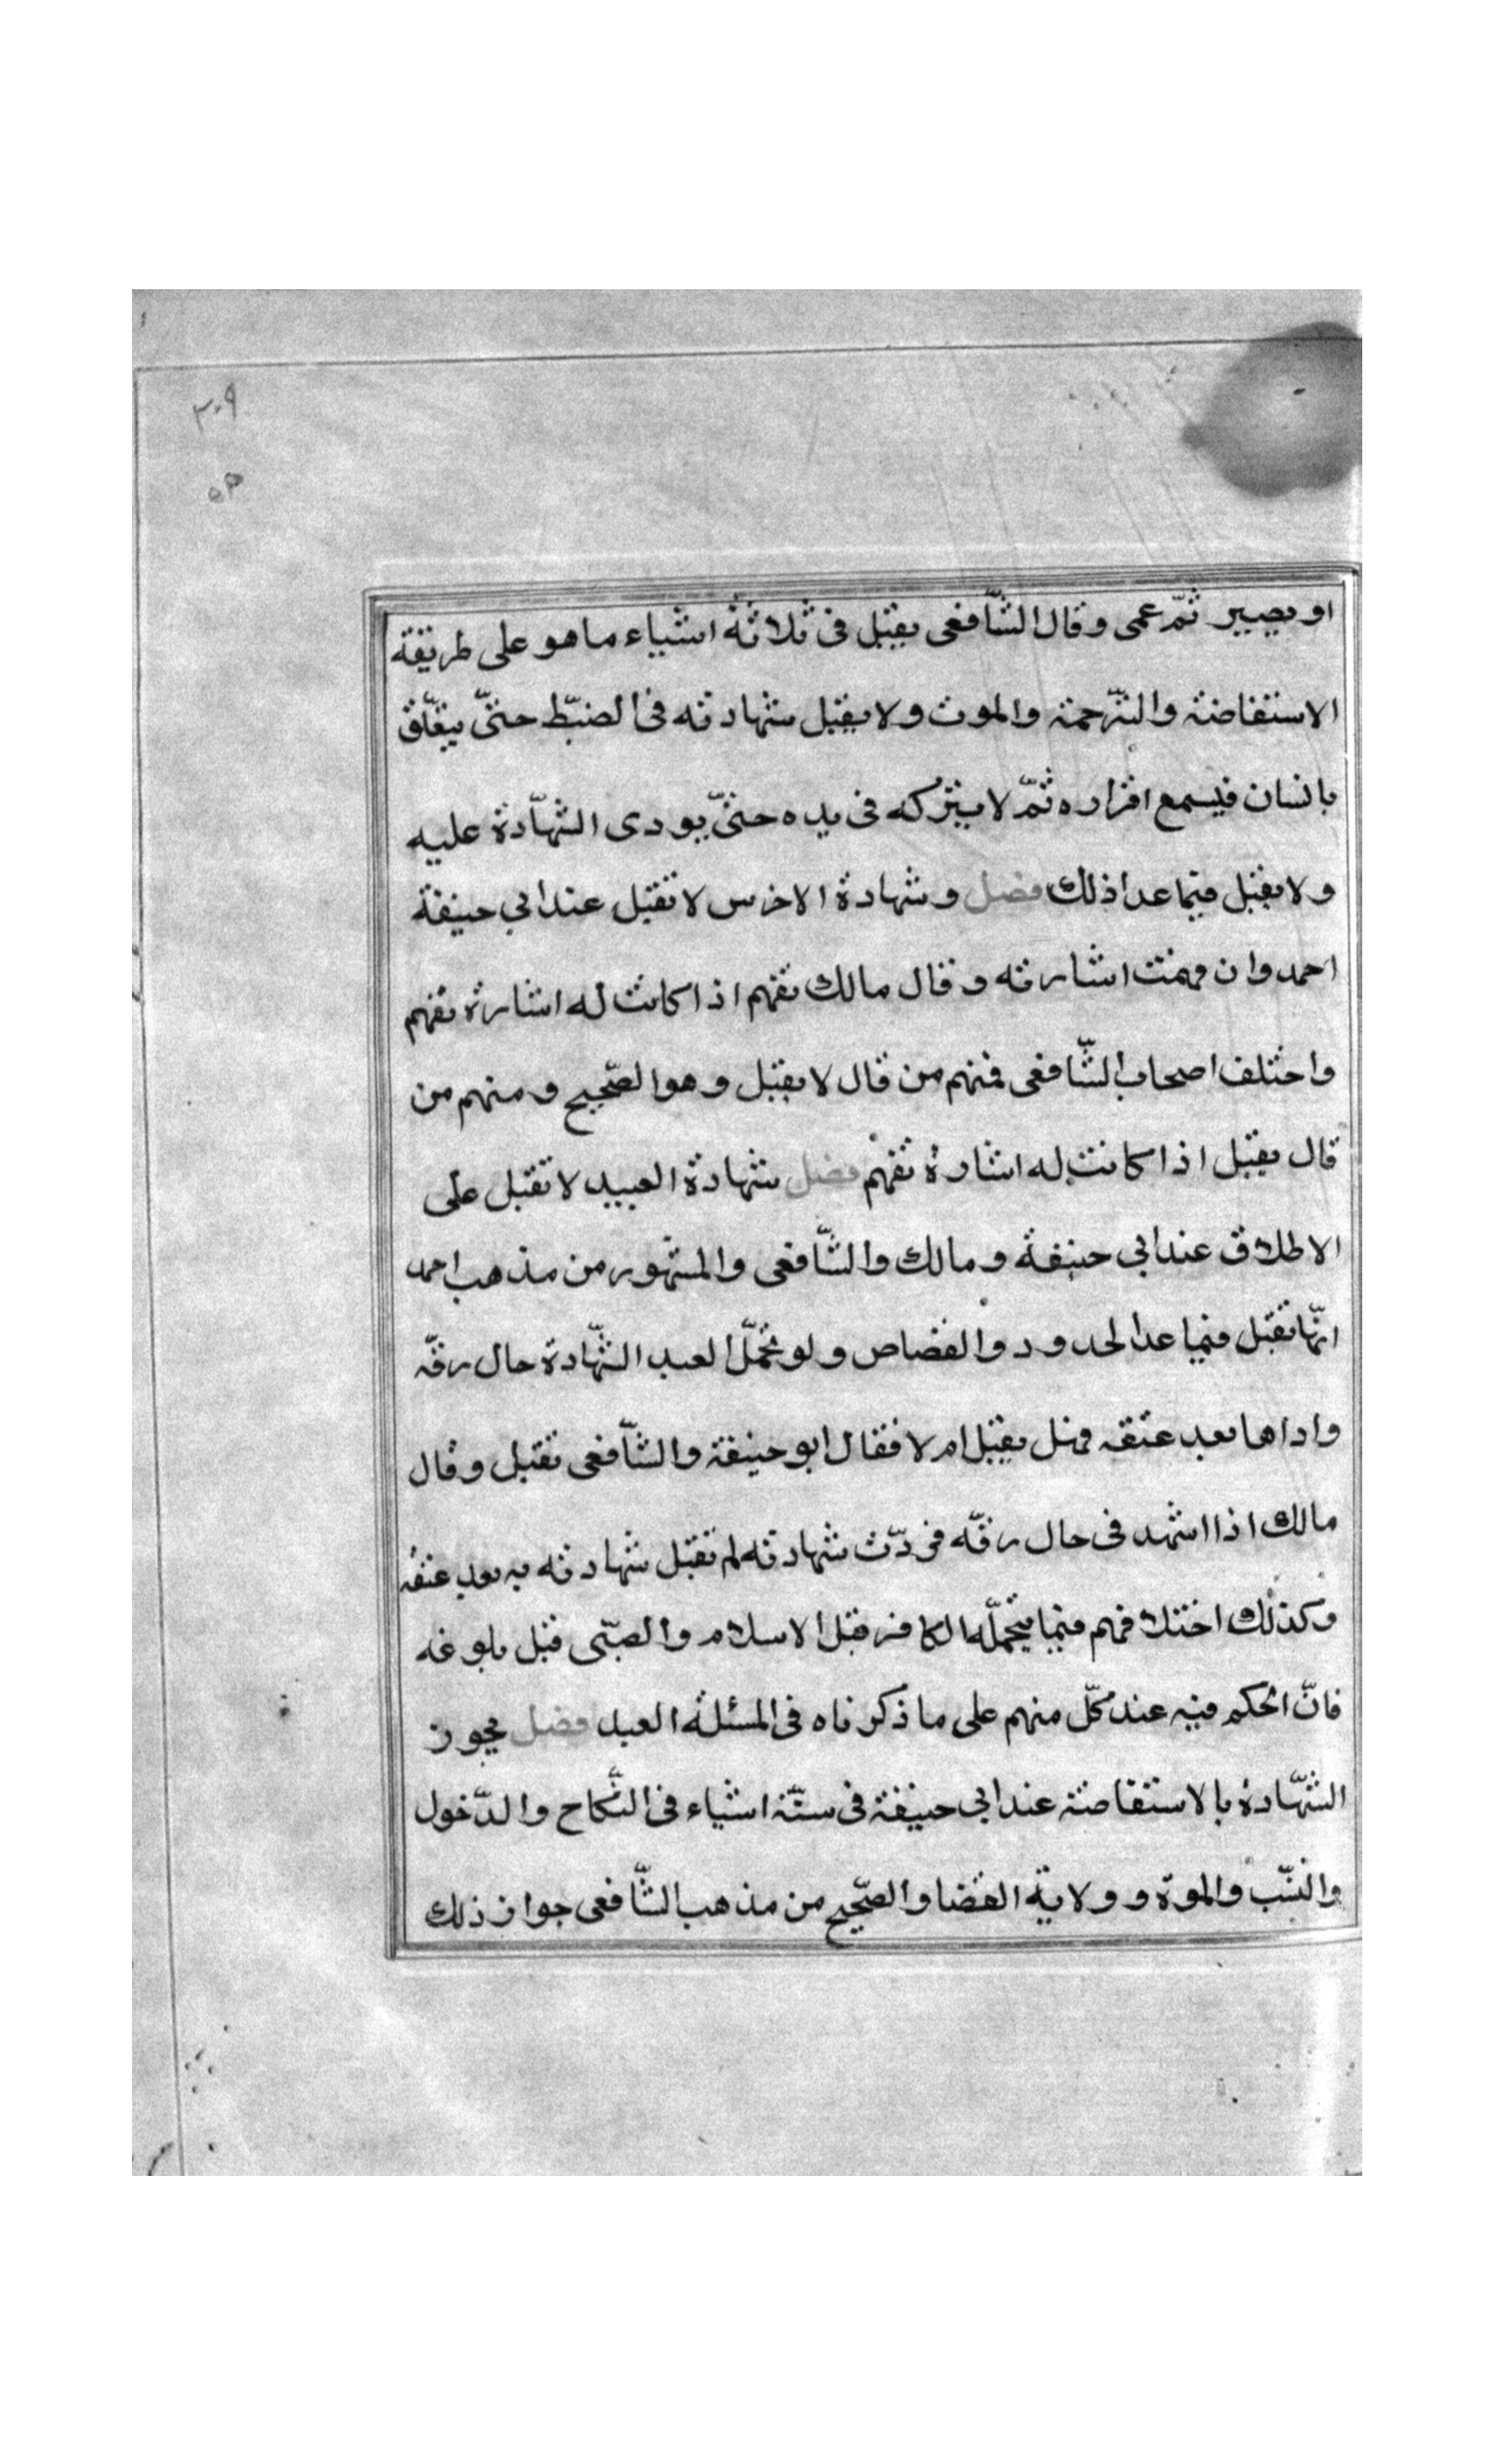 ٣٠٩
٥٣
او بصير ثمّ عمى وقال الشّافعى يقبل فى ثلاثة اشياء ما هو على طريقة
الاستفاضة والترّجمة والموت ولا يقبل شهادته فى الضبّط حتىّ يتعلّق
بانسان فيسمع اقراره ثمّ لا يتركه فى يده حتىّ يودى الشهّادة عليه
ولا يقبل فيما عدا ذلك فصل وشهادة الاخرس لا تقبل عند ابي حنيفة
احمد وان فهمت اشارته وقال مالك تفهم اذا كانت له اشارة تفهم
واختلف اصحاب الشّافعى فمنهم من قال لا يقبل وهو الصّحيح ومنهم من
قال يقبل اذا كانت له اشارة تفهم فصل شهادة العبيد لا تقبل على
الاطلاق عند ابي حنيفة ومالك والشّافعى والمشهور من مذهب احمد
انهّا تقبل فيما عدا الحدود والقصاص ولو تحمّل العبد الشهّادة حال رقّه
واداها بعد عتقه فهل يقبل ام لا فقال ابو حنيفة والشّافعى تقبل وقال
مالك اذا اشهد فى حال رقّه فردّت شهادته لم تقبل شهادته به بعد عتقه
وكذلك اختلافهم فيما يتحملّه الكافر قبل الاسلام والصّبى قبل بلوغه
فانّ الحكم فيه عند كلّ منهم على ما ذكرناه فى المسئلة العبد فصل يجوز
الشهّادة بالاستفاضة عند ابي حنيفة فى ستّة اشياء فى النكّاح والدّخول
والنسّب والموة وولاية القضا والصّحيح من مذهب الشّافعى جواز ذلك